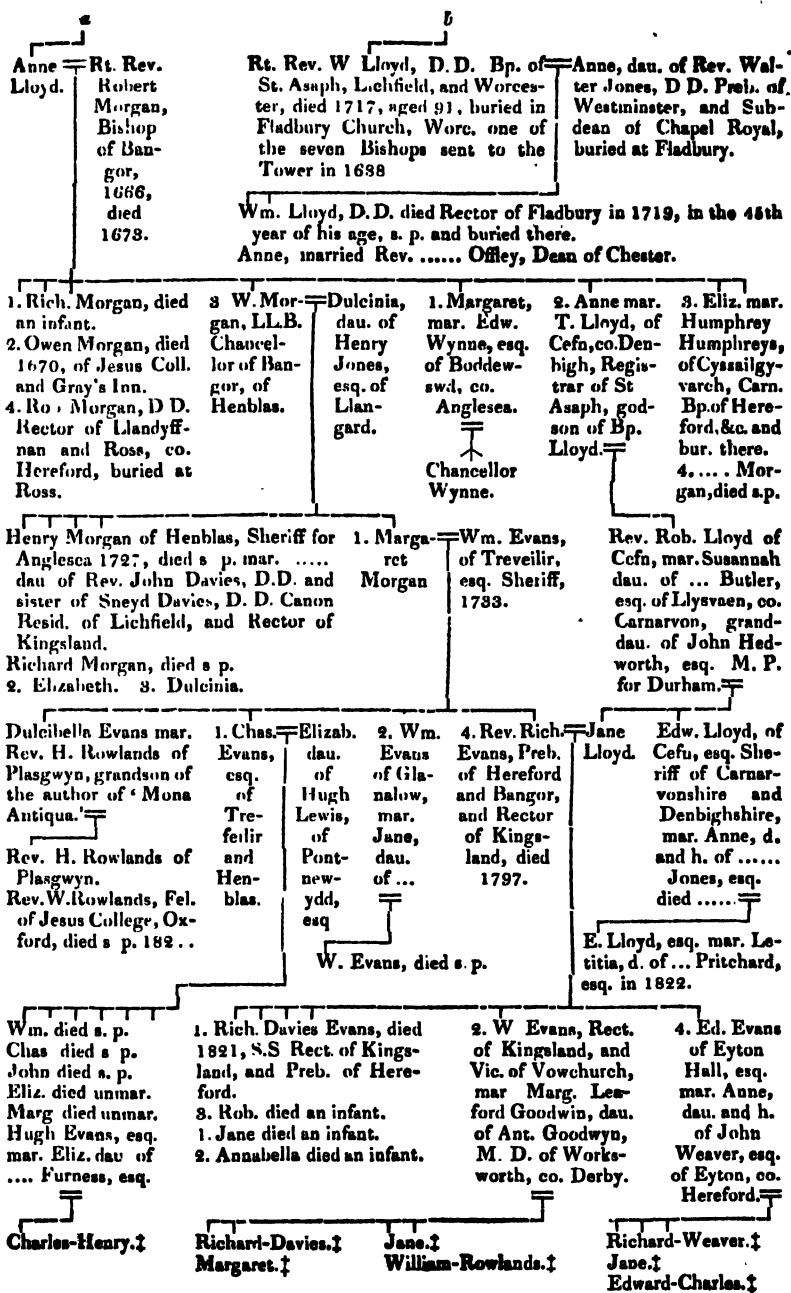 a
b
Anne = Rt. Rev.
Lloyd.
Robert
Morgan,
Bishop
of Ban-
gor,
1666,
died
1673.
Rt. Rev. W Lloyd, D.D. Bp. of
St. Asaph, Lichfield, and Worces-
ter, died 1717, aged 91, buried in
Fladbury Church, Worc. one of
the seven Bishops sent to the
Tower in 1688
= Anne, dau. of Rev. Wal-
ter Jones, D D. Preb. of
Westminster, and Sub-
dean of Chapel Royal,
buried at Fladbury.
Wm. Lloyd, D.D. died Rector of Fladbury in 1719, in the 45th
year of his age, s. p. and buried there.
Anne, married Rev. ...... Offley, Dean of Chester.
1. Rich. Morgan, died
an infant.
2. Owen Morgan, died
1670, of Jesus Coll.
and Gray's Inn.
4. Ro Morgan, D D.
Rector of Llandyff-
nan and Ross, co.
Hereford, buried at
Ross.
3 W. Mor-
gan, LL.B.
Chancel-
lor of Ban-
gor, of
Henblas.
= Dulcinia,
dau. of
Henry
Jones,
esq. of
Llan-
gard.
1. Margaret,
mar. Edw.
Wynne, esq.
of Boddew-
swd, co.
Anglesea.
Chancellor
Wynne.
2. Anne mar.
T. Lloyd, of
Cefn, co. Den-
bigh, Regis-
trar of St
Asaph, god-
son of Bp.
Lloyd. =
3. Eliz. mar.
Humphrey
Humphreys,
of Cyssailgy-
varch, Carn.
Bp. of Here-
ford, &c. and
bur. there.
4. .... Mor-
gan, died s.p.
Henry Morgan of Henblas, Sheriff for
Anglesca 1727, died s p. mar. .....
dau of Rev. John Davies, D.D. and
sister of Sneyd Davies, D. D. Canon
Resid. of Lichfield, and Rector of
Kingsland.
Richard Morgan, died s p.
2. Elizabeth. 3. Dulcinia.
1. Marga-
ret
Morgan
= Wm. Evans,
of Treveilir,
esq. Sheriff,
1733.
Rev. Rob. Lloyd of
Cefn, mar. Susannah
dau. of ... Butler,
esq. of Llysvaen, co.
Carnarvon, grand-
dau. of John Hed-
worth, esq. M. P.
for Durham. =
Dulcibella Evans mar.
Rev. H. Rowlands of
Plasgwyn, grandson of
the author of ‘ Mona
Antiqua.’ =
Rev. H. Rowlands of
Plasgwyn.
Rev. W. Rowlands, Fel.
of Jesus College, Ox-
ford, died s p. 182 . .
1. Chas.
Evans,
esq.
of
Tre-
feilir
and
Hen-
blas.
= Elizab.
dau.
of
Hugh
Lewis,
of
Pont-
new-
ydd,
esq
2. Wm.
Evans
of Gla-
nalow,
mar.
Jane,
dau.
of ...
W. Evans, died s. p.
4. Rev. Rich.
Evans, Preb.
of Hereford
and Bangor,
and Rector
of Kings-
land, died
1797.
= Jane
Lloyd.
Edw. Lloyd, of
Cefu, esq. She-
riff of Carnar-
vonshire and
Denbighshire,
mar. Anne, d.
and h. of ......
Jones, esq.
died ...... =
E. Lloyd, esq. mar. Le-
titia, d. of ... Pritchard,
esq. in 1822.
Wm. died s. p.
Chas died s p.
John died s. p.
Eliz. died unmar.
Marg died unmar.
Hugh Evans, esq.
mar. Eliz. dau of
.... Furness, esq.
Charles-Henry.‡
1. Rich. Davies Evans, died
1821, S.S Rect. of Kings-
land, and Preb. of Here-
ford.
3. Rob. died an infant.
1. Jane died an infant.
2. Annabella died an infant.
2. W Evans, Rect.
of Kingsland, and
Vic. of Vowchurch,
mar Marg. Lea-
ford Goodwin, dau.
of Ant. Goodwyn,
M. D. of Works-
worth, co. Derby.
4. Ed. Evans
of Eyton
Hall, esq.
mar. Anne,
dau. and h.
of John
Weaver, esq.
of Eyton, co.
Hereford. =
Richard-Davies.‡
Margaret.‡
Jane.‡
William-Rowlands.‡
Richard-Weaver.‡
Jane.‡
Edward-Charles.‡